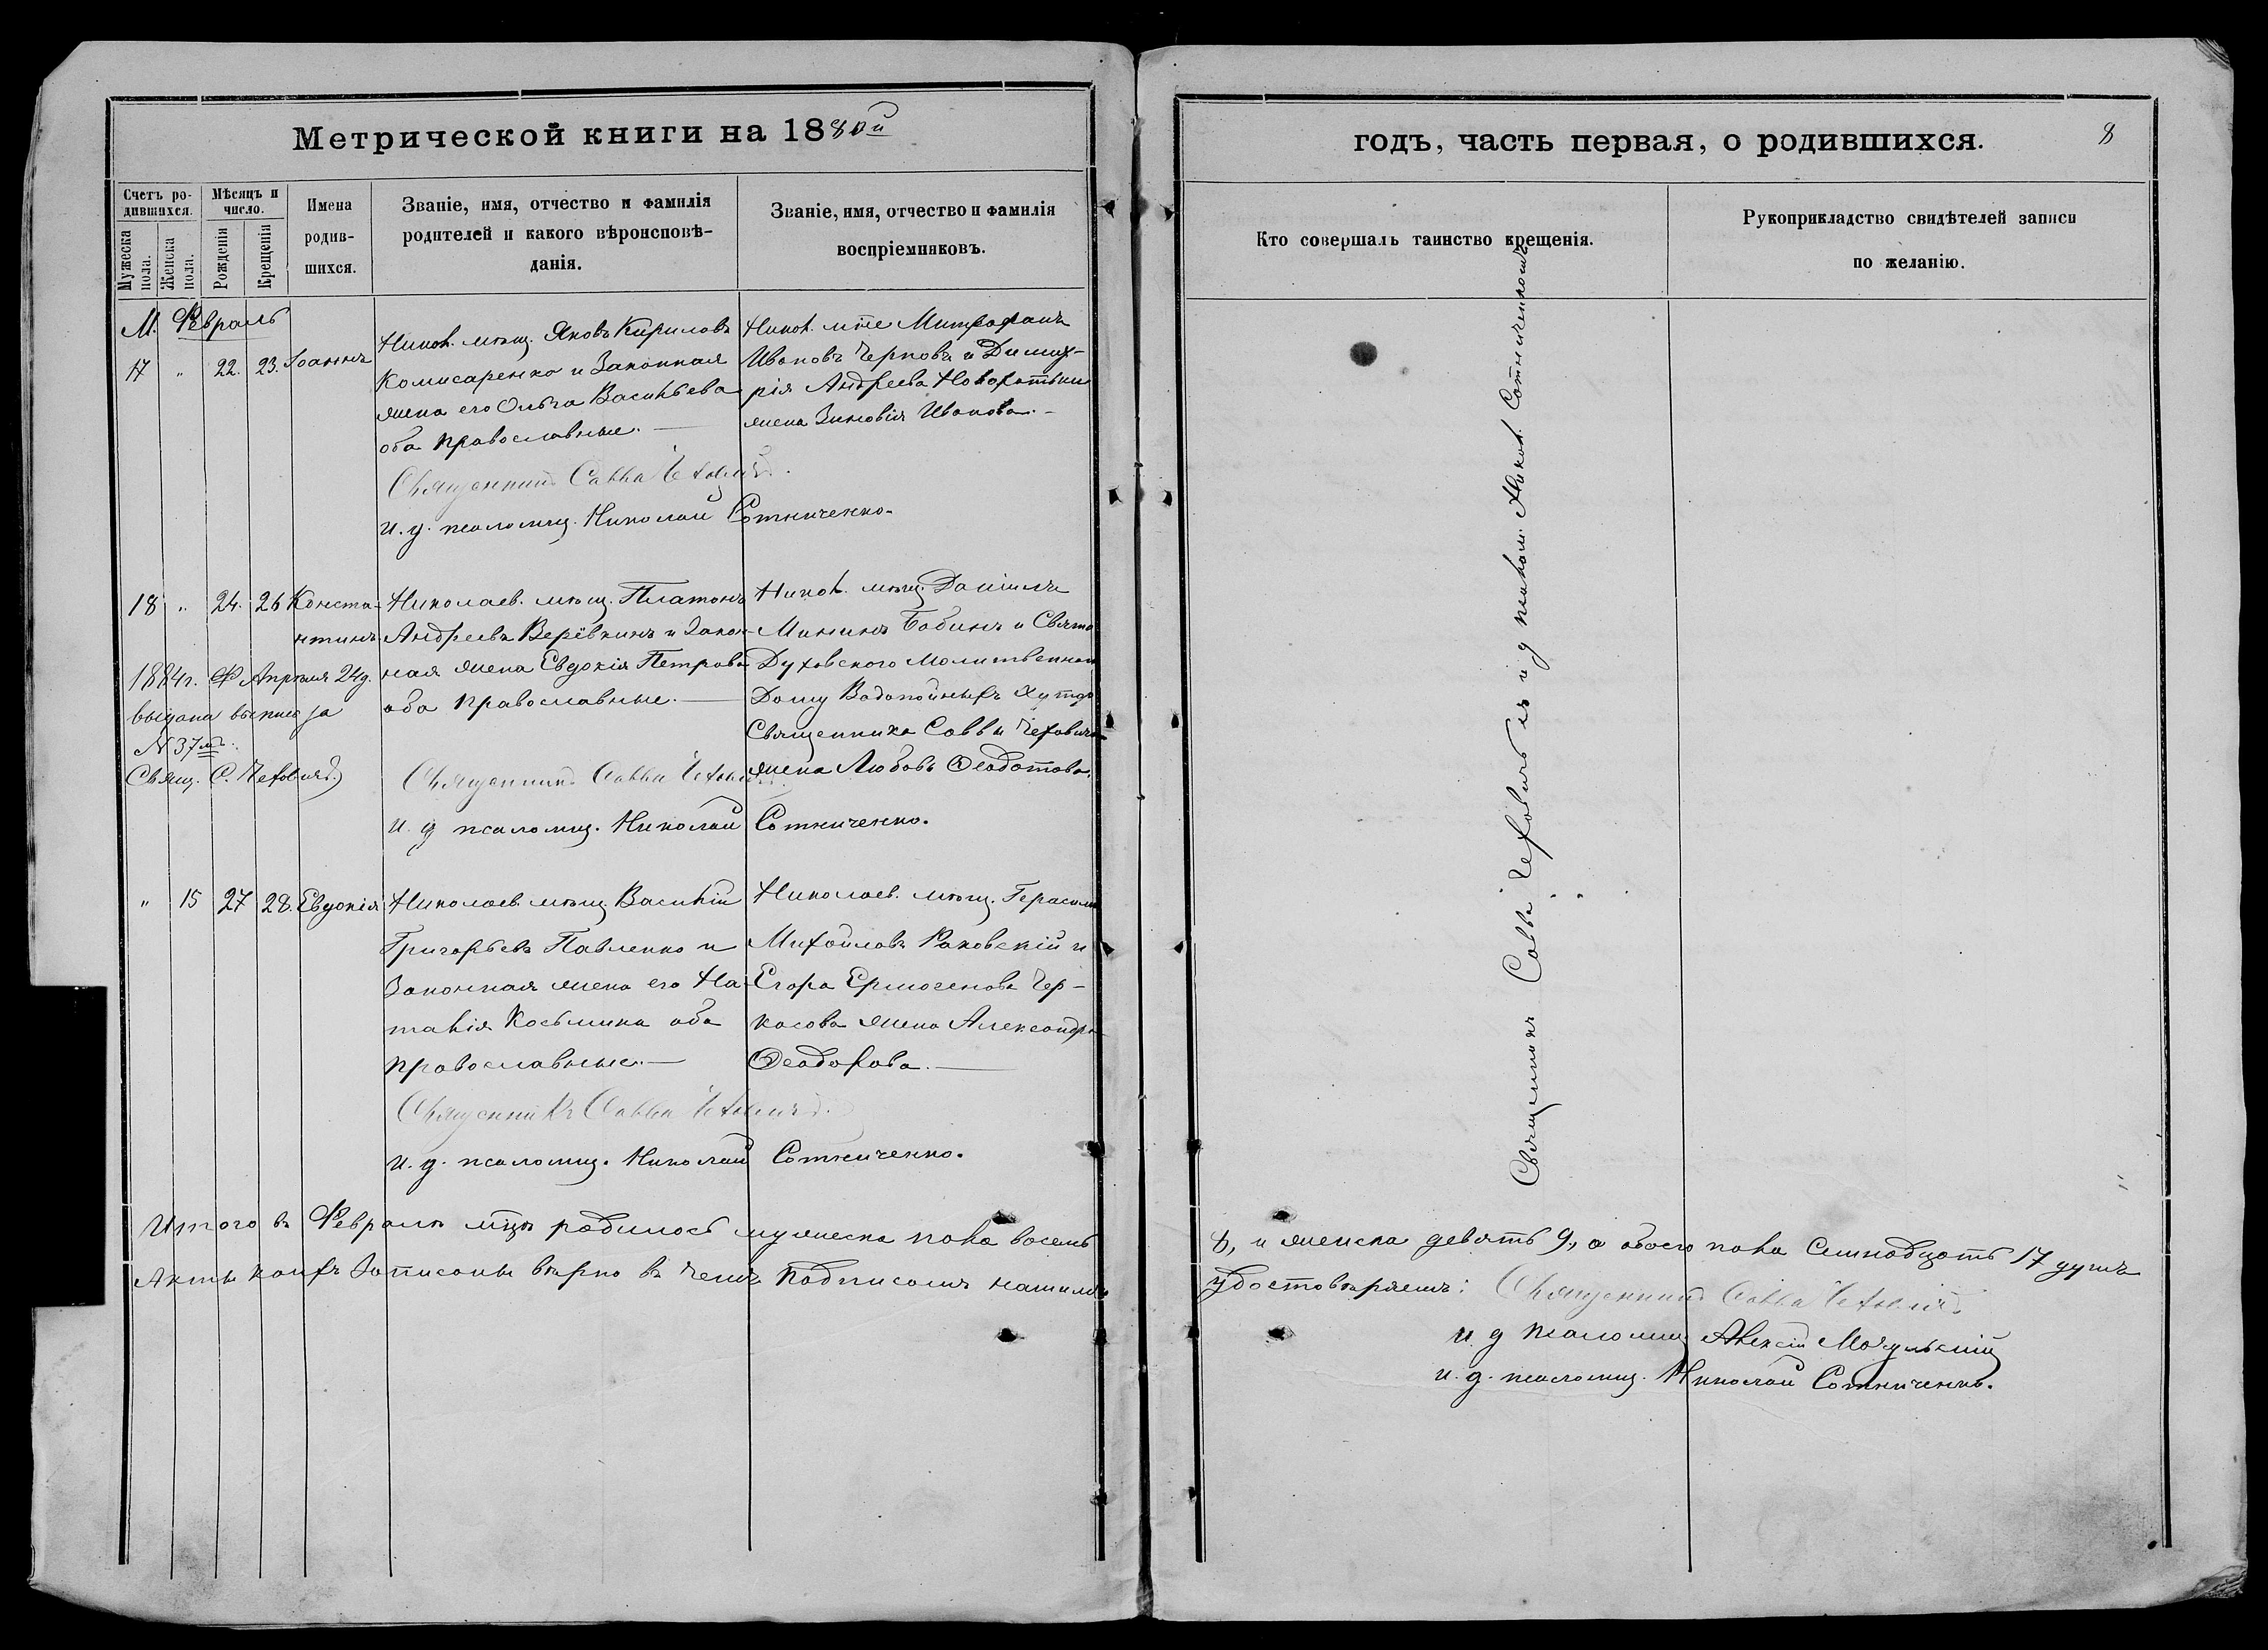 Метрической книги на 1880й
Счетъ ро-
дившихся.
Мужеска
пола.
Женска
пола.
Мѣсяцъ и
число.
Рожденія
Крещенія
Имена
родив-
шихся.
Званіе, имя, отчество и фамилія
родителей и какого вѣроисповѣ-
данія.
Званіе, имя, отчество и фамилія
воспріемниковъ.
М. Февраль
17 " 22. 23. Іоаннъ
Никол. мѣщ. Яковъ Кириловъ
Комисаренко и Законная
жена его Ольга Васильева
оба православные. —
Никол. мѣщ. Митрофанъ
Ивановъ Черновъ и Димит-
рія Андреева
жена Зиновія Иванова. –
Священникъ Савва Чехович.
и. д. псаломщ. Николай Сотниченко.
18 " 24. 26 Конста-
нтинъ
Николаев. мѣщ. Платонъ
Андреевъ Верёвкинъ и Закон-
ная жена Евдокія Петрова
оба православные. —
Никол. мѣщ. Даніилъ
Мининъ Бабинъ и Свято
Духовского молитвеннаго
Дому Водопойныхъ Хуторо
Священника Саввы Чехович
жена Любовь Ѳеодотова.
1884г. Апрѣля 24д.
выдана выпись за
N 37мъ.
Свящ. С. Чеховичъ
Священникъ Савва Чехович.
и. д псаломщ. Николай Сотниченко.
" 15 27 28. Евдокія
Николаев. мѣщ. Василій
Григорьевъ Павленко и
Законная жена его На-
талія Косьмина оба
православные. —
Николаев. мѣщ. Герасим
Михайловъ Раковскій и
Егора Ермогенова Чер-
касова жена Александра
Ѳеодорова. —
Священникъ Савва Чехович.
и. д. псаломщ. Николай Сотниченко.
Итого въ Февралѣ мцѣ родилось мужеска пола восемь
Акты коихъ Записаны вѣрно въ чемъ подписомъ нашимъ
годъ, часть первая, о родившихся.
8
Кто совершалъ таинство крещенія.
Рукоприкладство свидѣтелей записи
по желанію.
Священникъ Савва Чеховичъ съ и д псалом. Никол. Сотниченкомъ
8, и женска девять 9, а обоего пола Семнадцать 17 душъ
удостовѣряемъ: Священникъ Савва Чехович.
и. д псаломщ Алексій Мочульскій
и. д. псаломщ. Николай Сотниченко.